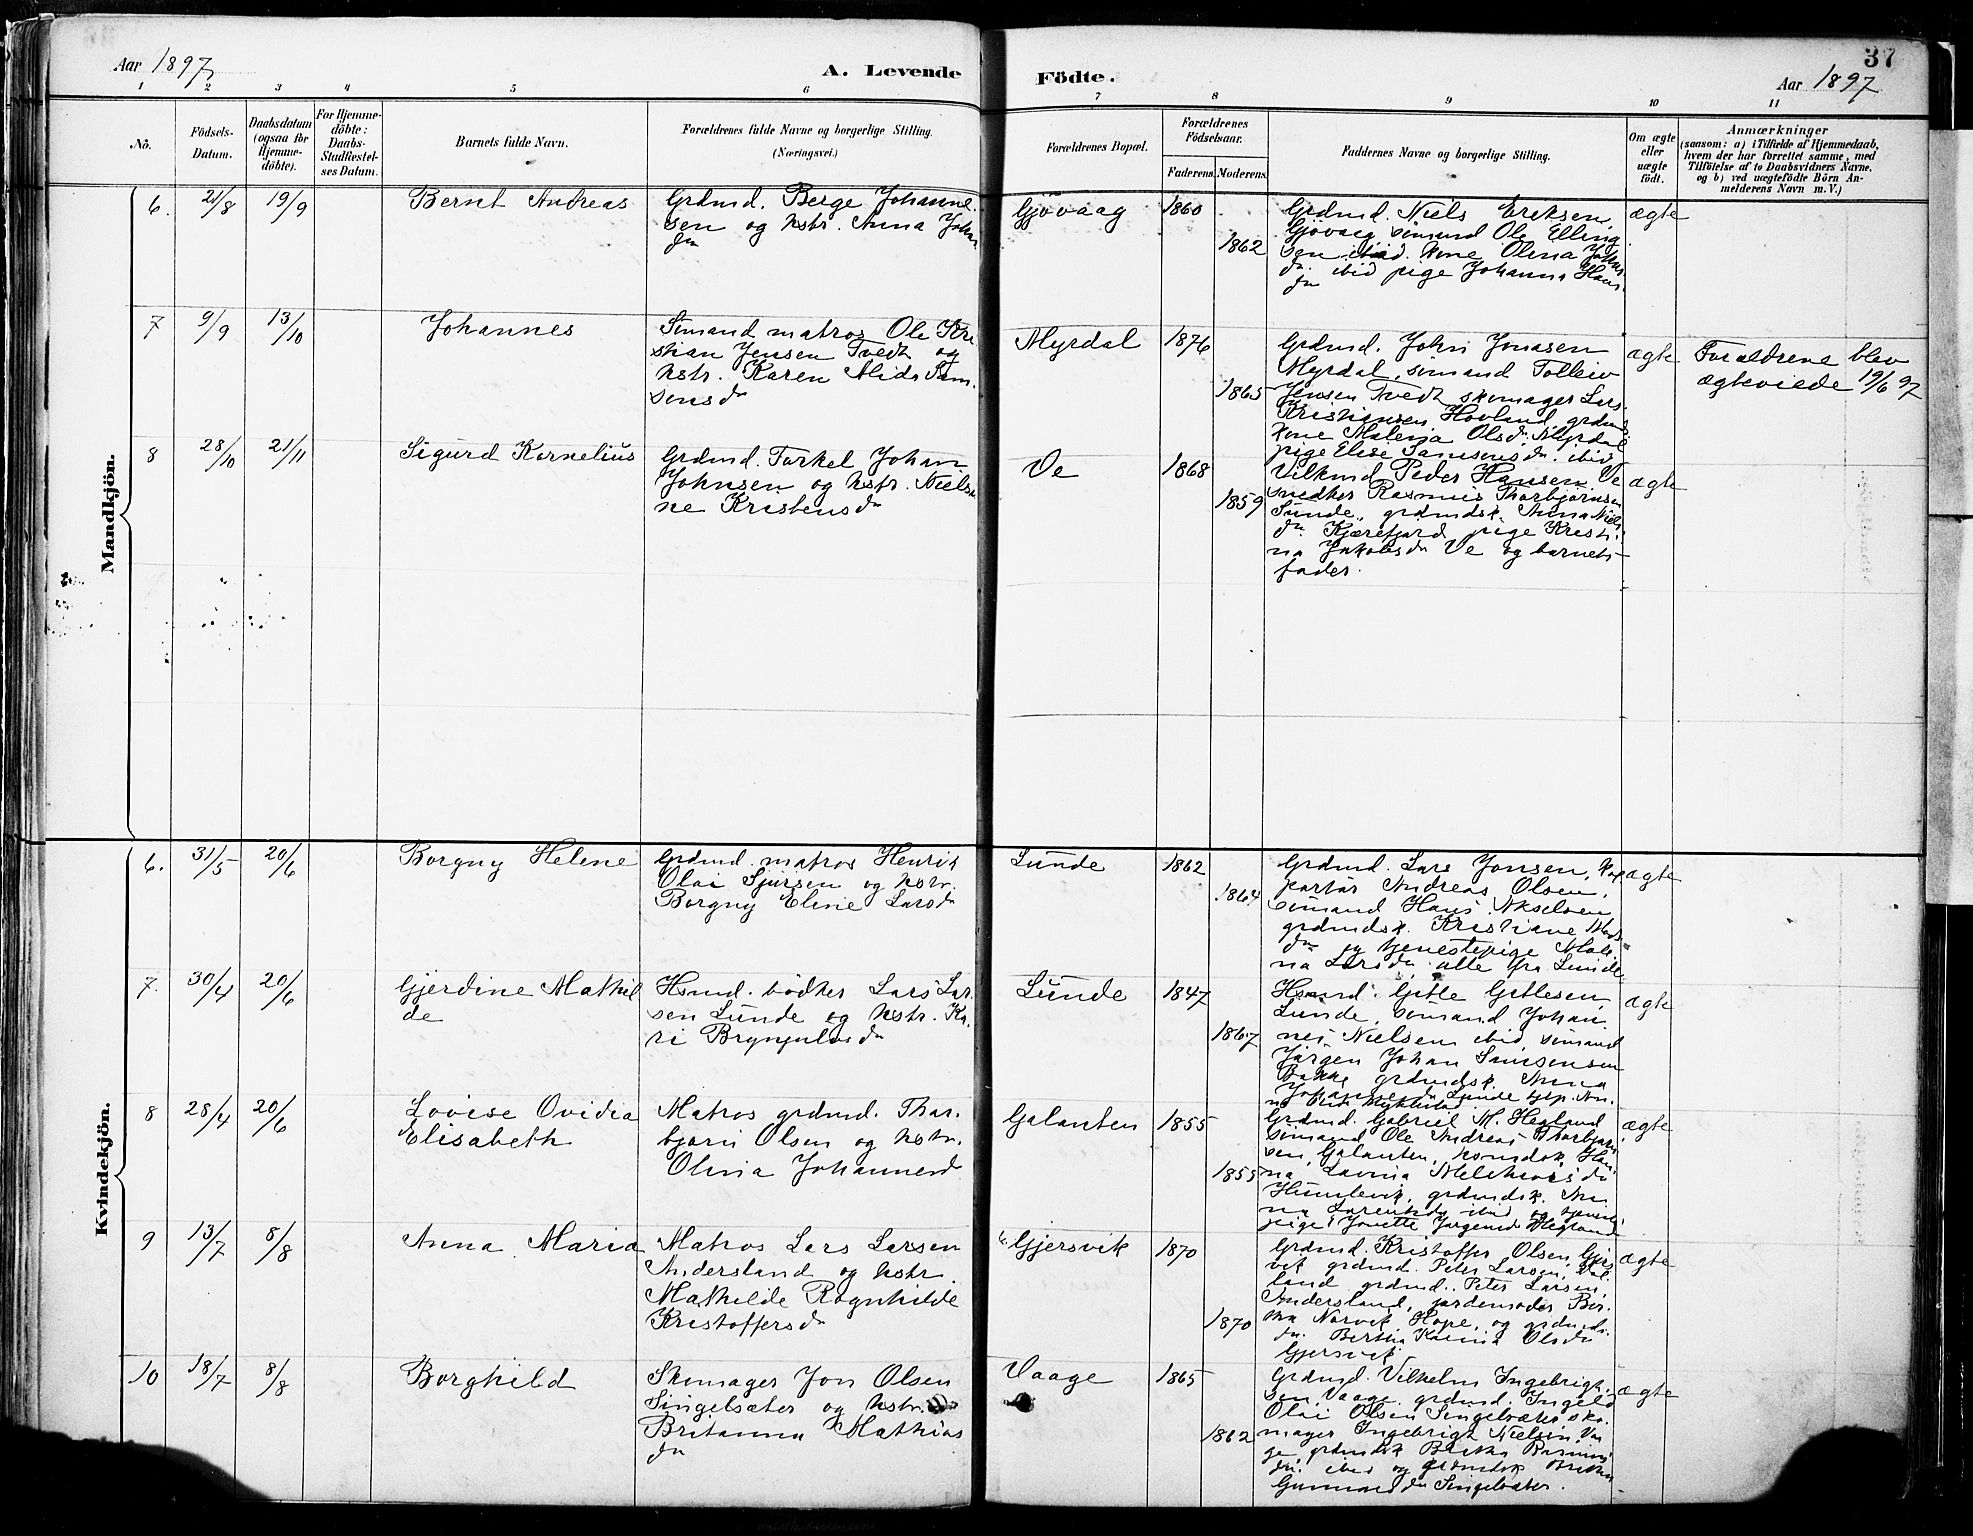 37
Aar 1897
A. Levende Födte.
Aar 1897
1 2 3 4 5 6 7 8 9 10 11
Nö.
Födsels-
Datum.
Daabsdatum
(ogsaa for
Hjemme-
döbte).
For Hjemme-
döbte:
Daabs-
Stadfæstel-
ses Datum.
Barnets fulde Navn.
Forældrenes fulde Navne og borgerlige Stilling.
(Næringsvei.)
Forældrenes Bopæl.
Forældrenes
Födselsaar.
Faderens.
Moderens.
Faddernes Navne og borgerlige Stilling.
Om ægte
eller
uægte
födt.
Anmærkninger
(saasom: a) i Tilfælde af Hjemmedaab,
hvem der har forrettet samme, med
Tilföielse af to Daabsvidners Navne,
og b) ved uægtefödte Börn An-
melderens Navn m. V.)
Mandkjön.
6. 21/8 19/9 Bernt Andreas
Grdmd. Berge Johanne
sen og hstr. Anna Johns
dr
Gjövaag 1860 1862
Grdmd. Niels Eriksen
Gjövaag sömand Ole Elling
sen ibid. kone Olina Johns
dr ibid pige Johanna Hans
dr
ægte
7 9/9 13/10 Johannes
Sömand matros Ole Kri
stian Jensen Tvedt og
hstr. Karen Alida Sam
sonsdr
Myrdal 1876 1865
Grdmd. John Jonasen
Myrdal, sömand Tolleiv
Jensen Tvedt skomager Lars
Kristiansen Hovland, grdmds
kone Malena Olsdr. Myrdal
pige Elise Samsonsdr. ibid
ægte
Forældrene blev
ægteviede 19/6 97
8 28/10 21/11 Sigurd Kornelius
Grdmd. Torkel Johan
Johnsen og hstr. Niels
ne Kristensdr
Ve 1868 1859
Peder Hansen Ve
snedker Rasmus Thorbjörnsen
Sunde, grdmdsk. Anna Niels
dr. Kjærefjord pige Kristi
na Jakobsdr Ve og barnets
fader.
ægte
Kvindekjön.
6. 31/5 20/6 Borgny Helene
Grdmd. matros Henrik
Olai Sjursen og hstr.
Borgny Eline Larsdr
Lunde 1862 1864
Grdmd. Lars Jonsen,
Andreas Olsen,
sömand Hans Akselsen
grdmdsk. Kristiane Mads
dr og tjenestepige Mali
na Larsdr, alle fra Lunde
ægte
7. 30/4 20/6 Gjerdine Mathil
de
Hsmd. bödker Lars Lar
sen Lunde og hstr. Ka
ri Brynjulvsdr
Lunde 1847 1867
Hsmd. Gitle Gitlesen
Lunde, sömand Johan
nes Nielsen ibid, sömand
Jörgen Johan Samsonsen
Bakke grdmdsk. Anna
Lunde
ægte
8 28/4 20/6 Lovise Ovidia
Elisabeth
Matros grdmd. Thor
björn Olsen og hstr.
Olina Johannesd
Galanten 1855 1855
Grdmd. Gabriel M. Hegland
sömand Ole Andreas Thorbjörn
sen, Galanten,
na Lavina Melchiorsdr
Humlevik, grdmdsk. An
na Larsdr ibid og tjeneste
pige Jonette Jörgensdr Hegland
ægte
9 13/7 8/8 Anna Maria
Matros Lars Larsen
Andersland og hstr.
Mathilde Ragnhilde
Kristoffersdr
Gjersvik 1870 1870
Grdmd. Kristoffer Olsen, Gjers
vik grdmd. Peter Larsen,
land grdmd. Peter Larsen,
Andersland, jordemoder Ber
tha Norvik Hope, og grdmds
dr. Bertha Karina Olsdr
Gjersvik
ægte
10 18/7 8/8 Borghild
Skomager Jon Olsen
Singelsæter og hstr.
Britanna Mathias
dr
Vaage 1865 1862
Grdmd. Vilhelm Ingebrigt
sen Vaage, grdmd. Ingeld
Olai Olsen Singelsæter, sko
mager Ingebrigt Nielsen Vaa
ge, grdmdsk Rasmus
dr. ibid og grdmdsk
Gunnarsdr Singelsæter.
ægte